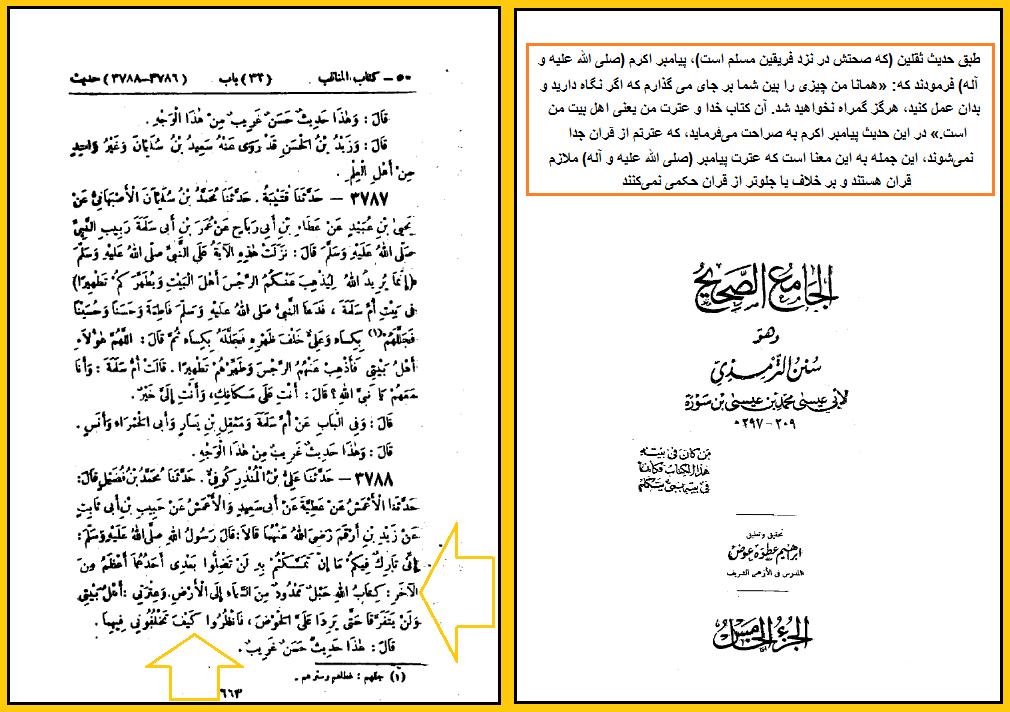 طبق حدیث ثقلین (که صحتش در نزد فریقین مسلم است)، پیامبر اکرم (صلی الله علیه و
آله) فرمودند که: «همانا من چیزی را بین شما بر جای می گذارم که اگر نگاه دارید و
بدان عمل کنید، هرگز گمراه نخواهید شد. آن کتاب خدا و عترت من یعنی اهل بیت من
است.» در این حدیث پیامبر اکرم به صراحت می‌فرماید، که عترتم از قران جدا
نمی‌شوند، این جمله به این معنا است که عترت پیامبر (صلی الله علیه و آله) ملازم
قران هستند و بر خلاف یا جلوتر از قران حکمی نمی‌کنند
الجامع الصحيح
وهو
سنن الترمذي
لأبي عيسى محمد بن عيسى بن سورة
٢٠٩ - ٢٩٧ ه
من كان في بيته
هذا الكتاب فكأنما
في بيته نبي يتكلم
تحقيق وتعليق
ابراهيم عطوة عوض
المدرس في الأزهر الشريف
الجزء الخامس
٥٠ - كتاب المناقب (٣٢) باب (٣٧٨٦-٣٧٨٨) حديث
قَالَ : وَهٰذَا حَدِيثٌ حَسَنٌ غَرِيبٌ مِنْ هٰذَا الْوَجْهِ .
قَالَ : وَزَيْدُ بْنُ الْحَسَنِ قَدْ رَوَى عَنْهُ سَعِيدُ بْنُ سُلَيْمَانَ وَغَيْرُ وَاحِدٍ
مِنْ أَهْلِ الْعِلْمِ .
٣٧٨٧ - حَدَّثَنَا قُتَيْبَةُ . حَدَّثَنَا مُحَمَّدُ بْنُ سُلَيْمَانَ الْأَصْبَهَانِيُّ عَنْ
يَحْيَى بْنِ عُبَيْدٍ عَنْ عَطَاءِ بْنِ أَبِي رَبَاحٍ عَنْ عُمَرَ بْنِ أَبِي سَلَمَةَ رَبِيبِ النَّبِيِّ
صَلَّى اللهُ عَلَيْهِ وَسَلَّمَ قَالَ : نَزَلَتْ هٰذِهِ الْآيَةُ عَلَى النَّبِيِّ صلّى اللهُ عَلَيْهِ وَسَلَّمَ
(إِنَّمَا يُرِيدُ اللهُ لِيُذْهِبَ عَنْكُمُ الرِّجْسَ أَهْلَ الْبَيْتِ وَيُطَهِّرَكُمْ تَطْهِيرًا)
فِي بَيْتِ أُمِّ سَلَمَةَ ، فَدَعَا النَّبِيُّ صلى اللهُ عَلَيْهِ وَسَلَّمَ فَاطِمَةَ وَحَسَنًا وَحُسَيْنًا
فَجَلَّلَهُمْ (١) بِكِسَاءٍ وَعَلِيٌّ خَلْفَ ظَهْرِهِ فَجَلَّلَهُ بِكِسَاءٍ ثُمَّ قَالَ : اللّٰهُمَّ هٰؤُلَاءِ
أَهْلُ بَيْتِي فَأَذْهِبْ عَنْهُمُ الرِّجْسَ وَطَهِّرْهُمْ تَطْهِيرًا . قَالَتْ أُمُّ سَلَمَةَ : وَأَنَا
مَعَهُمْ يَا نَبِيَّ اللهِ ؟ قَالَ : أَنْتِ عَلَى مَكَانِكِ، وَأَنْتِ إِلَى خَيْرٍ .
قَالَ : وَفِي الْبَابِ عَنْ أُمِّ سَلَمَةَ وَمَعْقِلِ بْنِ يَسَارٍ وَأَبِي الْحَمْرَاءِ وَأَنَسٍ .
قَالَ : وَهٰذَا حَدِيثٌ غَرِيبٌ مِنْ هٰذَا الْوَجْهِ .
٣٧٨٨ - حَدَّثَنَا عَلِيُّ بْنُ الْمُنْذِرِ كُوفِيٌّ . حَدَّثَنَا مُحَمَّدُ بْنُ فُضَيْلٍ قَالَ :
حَدَّثَنَا الْأَعْمَشُ عَنْ عَطِيَّةَ عَنْ أَبِي سَعِيدٍ وَالْأَعْمَشُ عَنْ حَبِيبِ بْنِ أَبِي ثَابِتٍ
عَنْ زَيْدِ بْنِ أَرْقَمَ رَضِيَ اللهُ عَنْهُمَا قَالَا : قَالَ رَسُولُ اللهِ صلَّى اللهُ عَلَيْهِ وَسَلَّمَ :
إِنِّي تَارِكٌ فِيكُمْ مَا إِنْ تَمَسَّكْتُمْ بِهِ لَنْ تَضِلُّوا بَعْدِي أَحَدُهُمَا أَعْظَمُ مِنَ
الْآخَرِ : كِتَابُ اللهِ حَبْلٌ مَمْدُودٌ مِنَ السَّمَاءِ إِلَى الْأَرْضِ وَعِتْرَتِي : أَهْلُ بَيْتِي
وَلَنْ يَتَفَرَّقَا حَتَّى يَرِدَا عَلَيَّ الْحَوْضَ ، فَانْظُرُوا كَيْفَ تَخْلُفُونِي فِيهِمَا .
قَالَ : هٰذَا حَدِيثٌ حَسَنٌ غَرِيبٌ .
(١) جللهم : غطاهم وسترهم .
٦٦٣